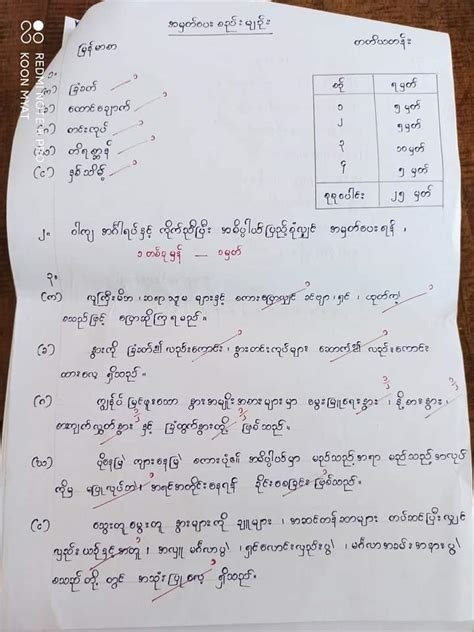 အမှတ်ပေး စည်းမျဉ်း
မြန်မာစာ
တတိယတန်း
၁။
(က) ခြံခတ် ၁
(ခ) ထောင်ချောက် ၁
(ဂ) တင်းကုပ် ၁
(ဃ) တိရစ္ဆာန် ၁
(င) နှစ်သိမ့် ၁
စဉ် ရမှတ်
၁ ၅ မှတ်
၂ ၅ မှတ်
၃ ၁၀ မှတ်
၄ ၅ မှတ်
စုစုပေါင်း ၂၅ မှတ်
၂။ ဝါကျ အင်္ဂါရပ်နှင့် ကိုက်ညီပြီး အဓိပ္ပါယ် ပြည့်စုံလျှင် အမှတ်ပေးရန် ,
၁ တစ်ခုမှန် — ၁ မှတ်
၃။
(က) လူကြီးမိဘ , ဆရာသမ များနှင့် စကားပြောလျှင် ခင်ဗျာ , ရှင် , ဟုတ်ကဲ့
စသည်ဖြင့် ပြောဆိုကြရမည်။
(ခ) နွားကို ခြံခတ်၍ လည်းကောင်း , နွားတင်းကုပ်များ ဆောက်၍ လည်းကောင်း
ထားလေ့ ရှိသည်။
(ဂ) ကျွန်ုပ် မြင်ဖူးသော နွားအမျိုးအစားများမှာ မွေးမြူရေးနွား , နို့စားနွား ,
စားကျက်လွှတ်နွား နှင့် ခြံထွက်နွားတို့ ဖြစ်သည်။
(ဃ) ပိုးနေမြဲ ကျားနေမြဲ စကားပုံ၏ အဓိပ္ပါယ်မှာ မည်သည့်အရာ မည်သည့်အလုပ်
ကိုမှ မပြုလုပ်ဘဲ အရင်အတိုင်းနေရန် ခိုင်းစေခြင်း ဖြစ်သည်။
(င) သွေးတူ မွေးတူ နွားများကို ချူများ , အဆင်တန်ဆာများ တပ်ဆင်ပြီး လျှင်
လှည်းယဉ်နှင့်အတူ , အလှူ မင်္ဂလာပွဲ , ရှင်လောင်းလှည့်ပွဲ , မင်္ဂလာအခမ်းအနားပွဲ
စသည်တို့တွင် အသုံးပြုလေ့ ရှိသည်။
REDMI NOTE 8 PRO
KOON MYAT